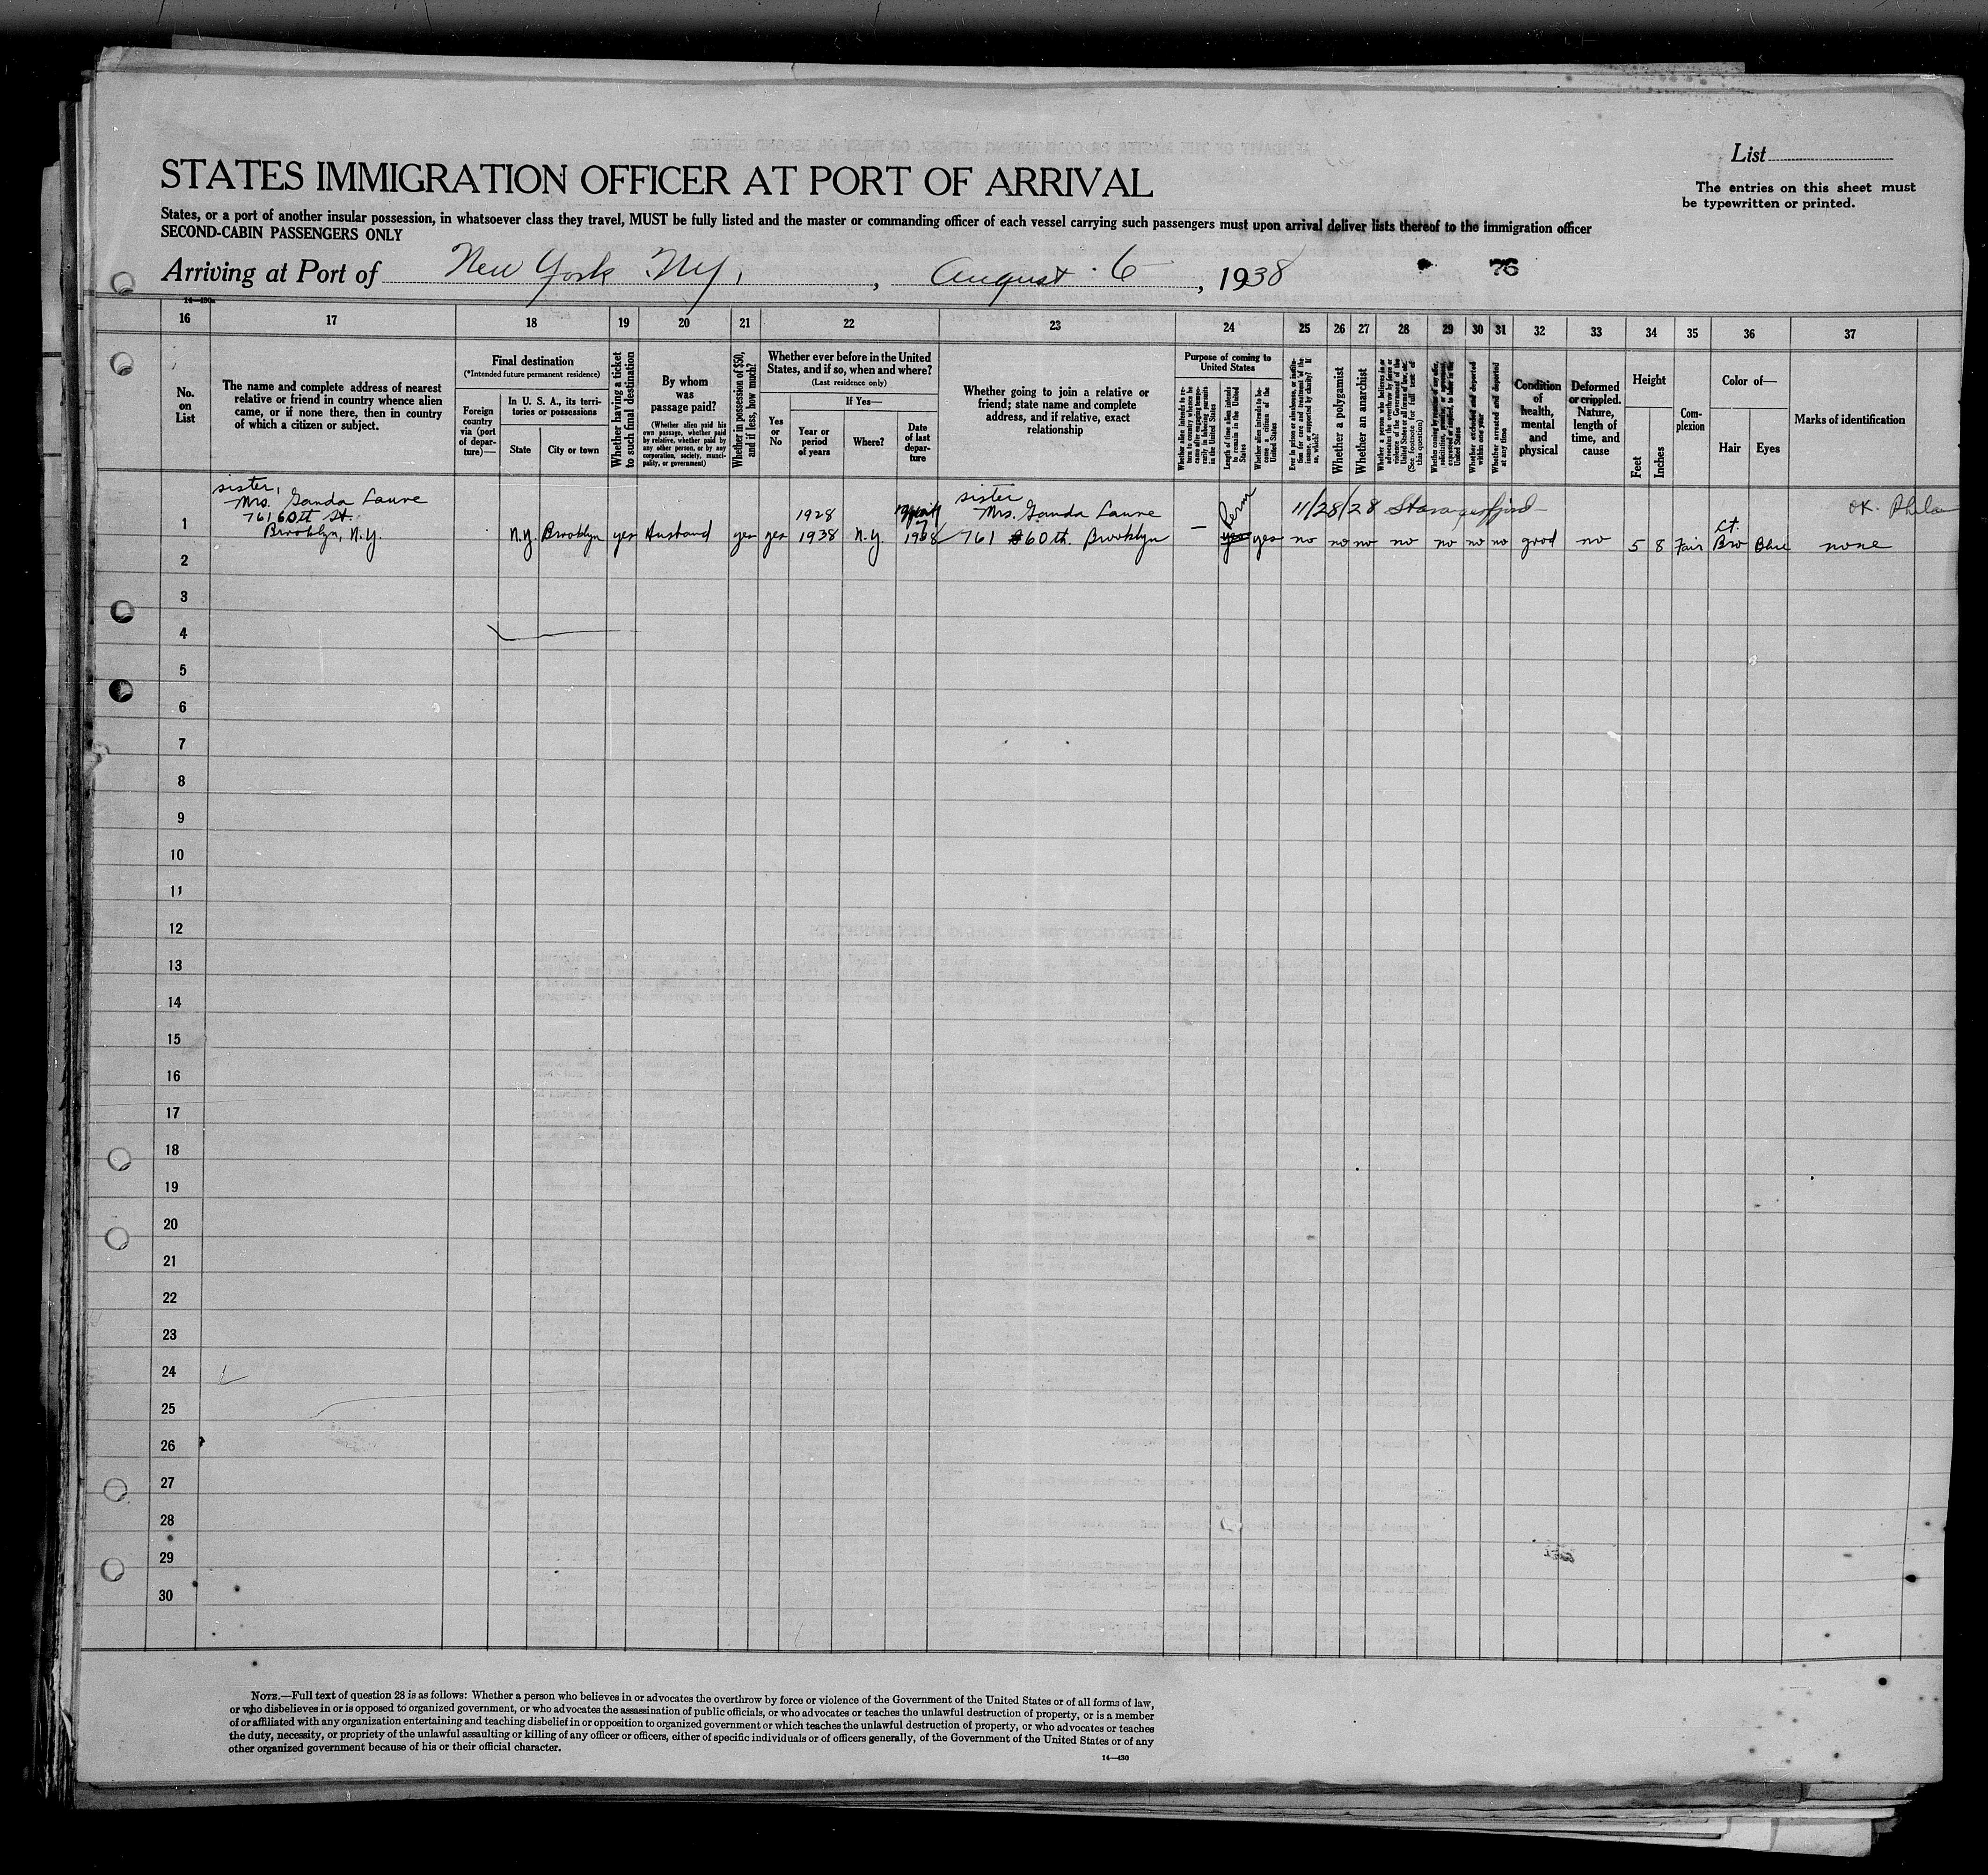 List
The entries on this sheet must
be typewritten or printed.
STATES IMMIGRATION OFFICER AT PORT OF ARRIVAL
States, or a port of another insular possession, in whatsoever class they travel, MUST be fully listed and the master or commanding officer of each vessel carrying such passengers must upon arrival deliver lists thereof to the immigration officer
SECOND-CABIN PASSENGERS ONLY
Arriving at Port of New York N.Y., August 6, 1938
76
14—430a
16 17 18 19 20 21 22 23 24 25 26 27 28 29 30 31 32 33 34 35 36 37
No.
on
List
The name and complete address of nearest
relative or friend in country whence alien
came, or if none there, then in country
of which a citizen or subject.
Final destination
(*Intended future permanent residence)
Foreign
country
via (port
of depar-
ture)—
In U. S. A., its terri-
tories or possessions
State
City or town
Whether having a ticket
to such final destination
By whom
was
passage paid?
(Whether alien paid his
own passage, whether paid
by relative, whether paid by
any other person, or by any
corporation, society, munici-
pality, or government)
Whether in possession of $50,
and if less, how much?
Whether ever before in the United
States, and if so, when and where?
(Last residence only)
Yes
or
No
If Yes—
Year or
period
of years
Where?
Date
of last
depar-
ture
Whether going to join a relative or
friend; state name and complete
address, and if relative, exact
relationship
Purpose of coming to
United States
Whether alien intends to re-
turn to country whence he
came after engaging tempo-
rarily in laboring pursuits
in the United States
Length of time alien intends
to remain in the United
States
Whether alien intends to be-
come a citizen of the
United States
Ever in prison or almshouse, or institu-
tion for care and treatment of the
insane, or supported by charity? If
so, which?
Whether a polygamist
Whether an anarchist
Whether a person who believes in or
advocates the overthrow by force or
violence of the Government of the
United States or all forms of law, etc.
(See footnote for full text of
this question)
Whether coming by reason of any offer,
solicitation, promise, or agreement,
expressed or implied, to labor in the
United States
Whether excluded and deported
within one year
Whether arrested and deported
at any time
Condition
of
health,
mental
and
physical
Deformed
or crippled.
Nature,
length of
time, and
cause
Height
Feet
Inches
Com-
plexion
Color of—
Hair
Eyes
Marks of identification
sister, sister
Mrs. Ganda Laure 1928 Mrs. Ganda Laure Perm 11/28/28 OK.
761 60th St. 7
1 Brooklyn, N.Y. N.Y. Brooklyn yes Husband yes yes 1938 N.Y. 1938 761 60th. Brooklyn — yes yes no no no no no no no good no 5 8 Fair Lt. Bro Blue none
2
3
4
5
6
7
8
9
10
11
12
13
14
15
16
17
18
19
20
21
22
23
24
25
26
27
28
29
30
NOTE.—Full text of question 28 is as follows: Whether a person who believes in or advocates the overthrow by force or violence of the Government of the United States or of all forms of law,
or who disbelieves in or is opposed to organized government, or who advocates the assassination of public officials, or who advocates or teaches the unlawful destruction of property, or is a member
of or affiliated with any organization entertaining and teaching disbelief in or opposition to organized government or which teaches the unlawful destruction of property, or who advocates or teaches
the duty, necessity, or propriety of the unlawful assaulting or killing of any officer or officers, either of specific individuals or of officers generally, of the Government of the United States or of any
other organized government because of his or their official character.
14—430